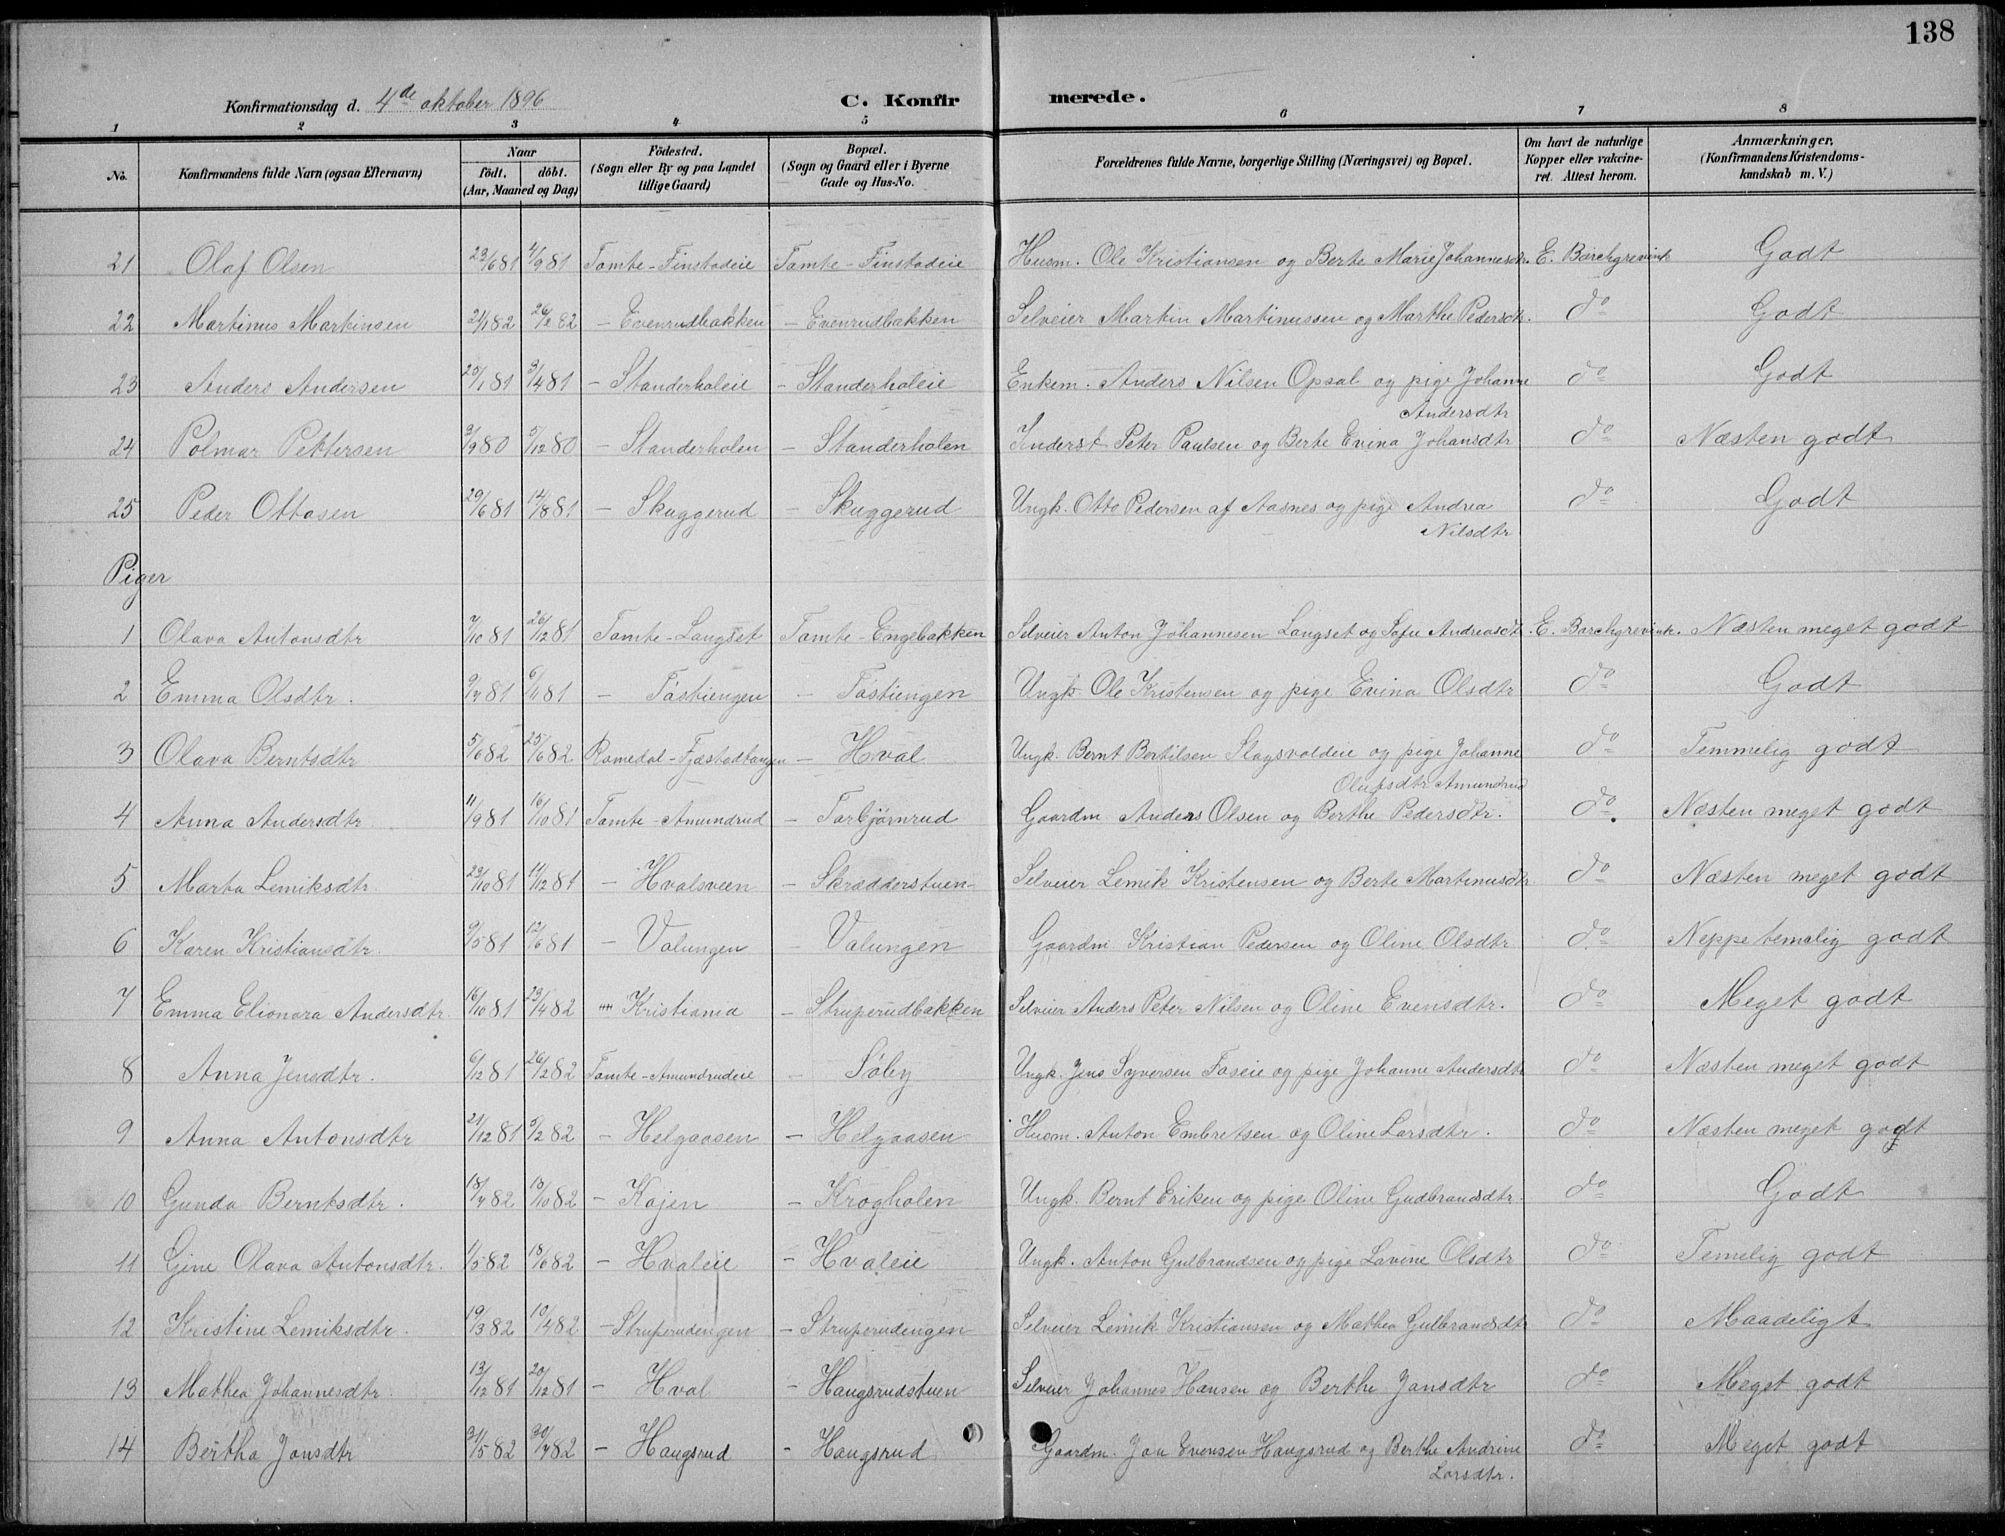 138
Konfirmationsdag d. 4de oktober 1896 C. Konfirmerede.
1 2 3 4 5 6 7 8
No. Konfirmandens fulde Navn (ogsaa Efternavn) Naar födt. döbt. (Aar, Maaned og Dag) Födested. (Sogn eller By og paa Landet tillige Gaard) Bopæl. (Sogn og Gaard eller i Byerne Gade og Hus-No. Forældrenes fulde Navne, borgerlige Stilling (Næringsvei) og Bopæl. Om havt de naturlige Kopper eller vakcineret. Attest herom. Anmærkninger, (Konfirmandens Kristendomskundskab m. V.)
21 Olaf Olsen 23/6 81 4/9 81 Tomte-Finstadeie Tomte-Finstadeie Husm. Ole Kristiansen og Berte Marie Johannesdtr. E. Borchgrevink Godt
22 Martinus Martinsen 21/1 82 26/2 82 - Evenrudbakken - Evenrudbakken Selveier Martin Martinussen og Marthe Pedersdtr. do Godt
23 Anders Andersen 20/1 81 3/4 81 - Standerholeie - Standerholeie Enkem. Anders Nilsen Opsal og pige Johanne do Godt
Andersdtr
24 Polmar Pettersen 3/9 80 5/12 80 - Standerholen - Standerholen Inderst Peter Paulsen og Berte Evina Johansdtr do Næsten godt
25 Peder Ottosen 29/6 81 14/8 81 - Skuggerud - Skuggerud Ungk. Otto Pedersen af Aasnes og pige Andrea do Godt
Nilsdtr
Piger
1 Olava Antonsdtr 7/10 81 26/12 81 Tomte-Langset Tomte-Engebakken Selveier Anton Johannesen Langset og Sofie Andreasdt. E. Borchgrevink. Næsten meget godt
2 Emma Olsdtr. 9/7 81 6/11 81 - Tostiengen - Tostiengen Ungk Ole Kristensen og pige Evina Olsdtr do Godt
3 Olava Berntsdtr 5/6 82 25/6 82 Romedal-Fjæstadtangen - Hval Ungk. Bernt Bertilsen Slagsvoldeie og pige Johanne do Temmelig godt
Olufsdtr Amundrud
4 Anna Andersdtr 11/9 81 16/10 81 Tomte-Amundrud - Torbjørnrud Gaardm Anders Olsen og Berthe Pedersdtr. do. Næsten meget godt
5 Marta Lemiksdtr. 23/10 81 11/12 81 - Hvalsveen - Skrædderstuen- Selveier Lemik Kristensen og Berte Martinusdtr do Næsten meget godt
6 Karen Kristiansdtr. 9/5 81 12/6 81 - Valungen - Valungen Gaardm Kristian Pedersen og Oline Olsdtr do Neppe temelig godt
7 Emma Elionora Andersdtr. 16/10 81 23/4 82 Kristiania - Struperudbakken Selveier Anders Peter Nilsen og Oline Evensdtr. do Meget godt
8 Anna Jensdtr. 6/12 81 26/2 82 Tomte-Amundrudeie - Søby Ungk. Jens Syversen Foseie og pige Johanne Andersdtr do Næsten meget godt
9 Anna Antonsdtr 21/12 81 5/2 82 - Helgaasen - Helgaasen Husm. Anton Embretsen og Oline Larsdtr. do Næsten meget godt
10 Gunda Berntsdtr. 18/7 82 15/10 82 - Kojen - Krogholen Ungk. Bernt Eriksen og pige Oline Gudbrandsdtr. do Godt
11 Gine Olava Antonsdtr. 11/5 82 18/6 82 - Hvaleie - Hvaleie Ungk. Anton Gulbrandsen og pige Lovine Olsdtr do Temelig godt
12 Kristine Lemiksdtr. 19/3 82 10/4 82 - Struperudengen - Struperudengen Selveier Lemik Kristiansen og Mathea Gulbrandsdtr do Maadeligt
13 Mathea Johannesdtr. 13/12 81 20/12 81 - Hval - Haugsrudstuen Selveier Johannes Hansen og Berthe Jonsdtr do Meget godt
14 Bertha Jonsdtr 31/5 82 30/7 82 - Haugsrud - Haugsrud Gaardm. Jon Evensen Haugsrud og Berthe Andrine do Meget godt
Larsdtr.